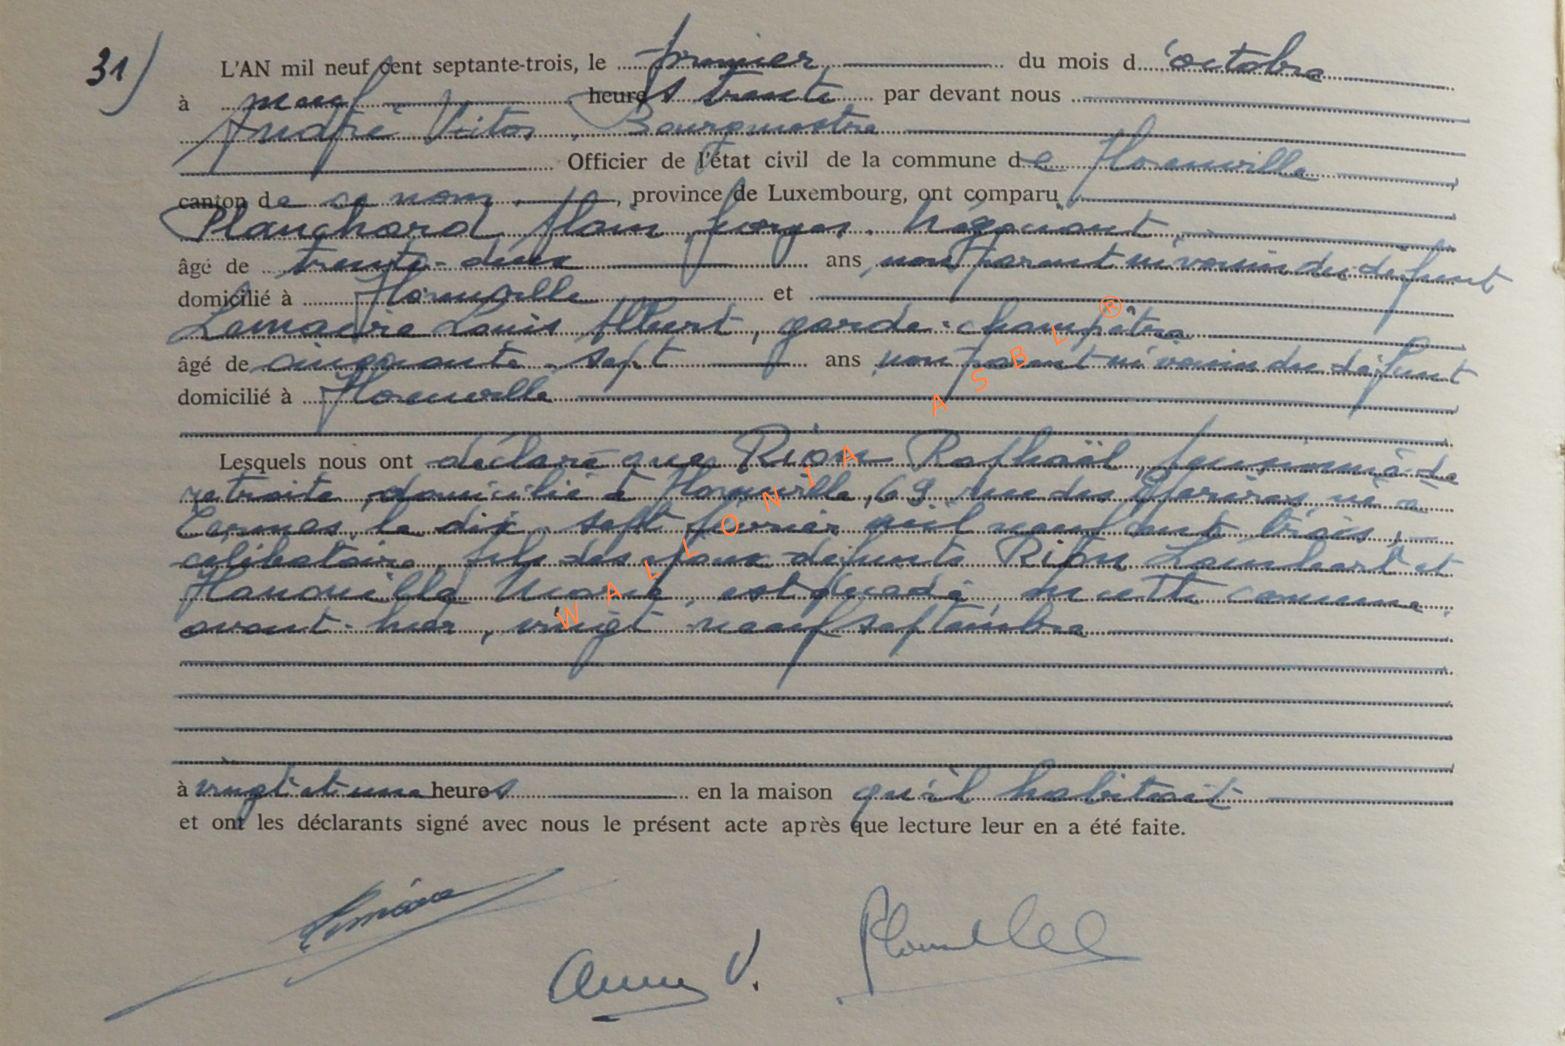 31) L'AN mil neuf cent septante-trois, le premier du mois d'octobre
à neuf heures trente par devant nous
André Victor, Bourgmestre
Officier de l'état civil de la commune de Florenville
canton de ce nom, province de Luxembourg, ont comparu
Planchard Alain, Georges, négociant
âgé de trente-deux ans, non parent ni voisin du défunt
domicilié à Florenville et
Lemaire Louis Albert, garde-champêtre
âgé de cinquante-sept ans non parent ni voisin du défunt
domicilié à Florenville
Lesquels nous ont déclaré que Rion Raphaël, pensionné de
retraite, domicilié à Florenville, 69, rue des né à
le dix-sept février mil neuf cent trois,
célibataire, fils des époux défunts Rion Lambert et
Marie, est décédé en cette commune
avant-hier, vingt neuf septembre
à vingt et une heures en la maison qu'il habitait
et ont les déclarants signé avec nous le présent acte après que lecture leur en a été faite.
WALLONIA ASBL ®